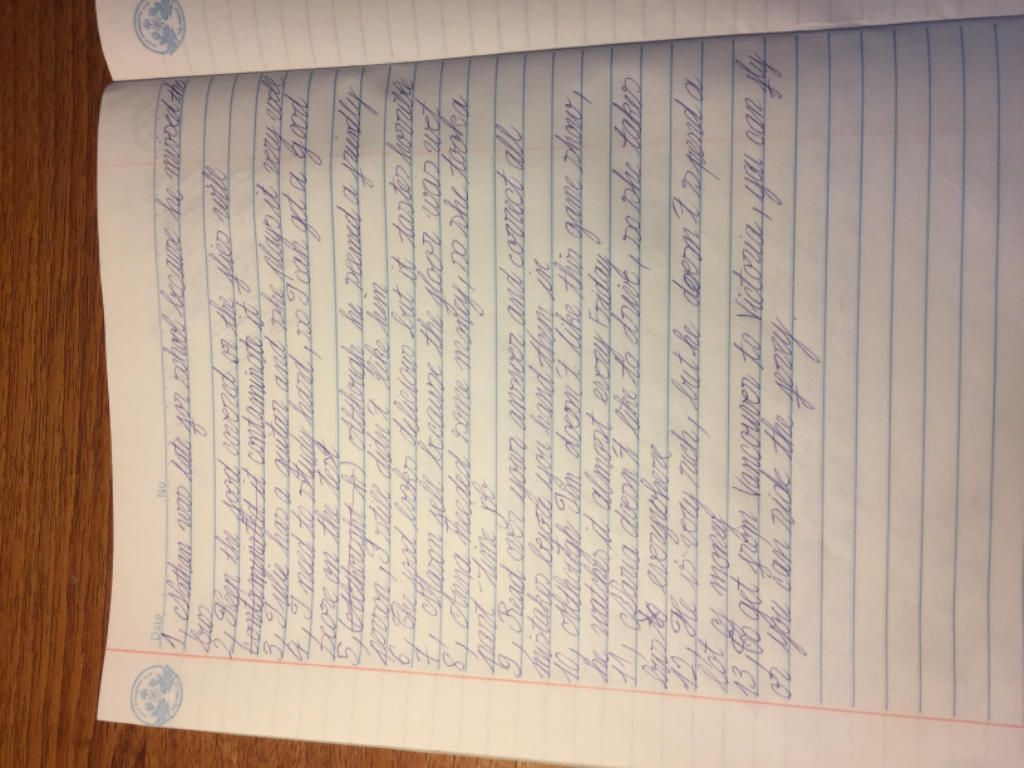 Date No
1 Adam was late for school because he missed the
bus
2) Ben the food or he will
3) Mia has a guitar and she plays it very well
4) I need to study hard, so I can get a good
score on the test
5) (although) Although he seemed a friendly
person, I still didn't like him
6) The food looks delicious but it tastes horrible
7) Sharon fell because the floor was wet
8) Anna needed some money, so she took a
part-time job
9) Read over your answers and correct all
mistakes before you hand them in
10) Although Tim doesn't like this game show,
he watches it almost every Friday
11) doesn't like to drive, so she takes
bus everywhere
12) He is very rich, but he doesn't spend a
lot of money
13) To get from Vancouver to Victoria, you can fly
or you can ride the ferry